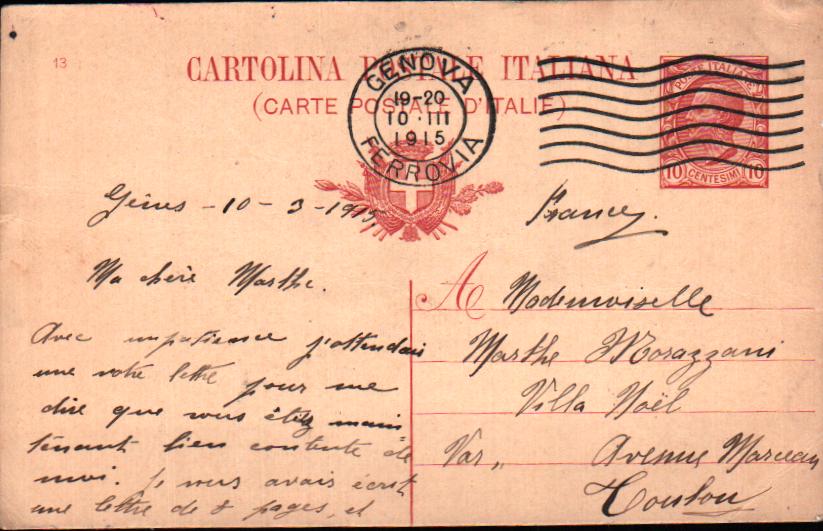 13
CARTOLINA POSTALE ITALIANA
(CARTE POSTALE D'ITALIE)
GENOVA
19-20
10·III
1915
FERROVIA
POSTE ITALIANE
10 CENTESIMI 10
Gênes - 10 - 3 - 1915
France,
Ma chère Marthe.
Avec impatience j'attendais
une votre lettre pour me
dire que vous étiez main
tenant bien contente de
moi. Je vous avais écrit
une lettre de 8 pages, et
A Mademoiselle
Marthe Morazzani
Villa Noël
Var,, Avenue Marceau
Toulon